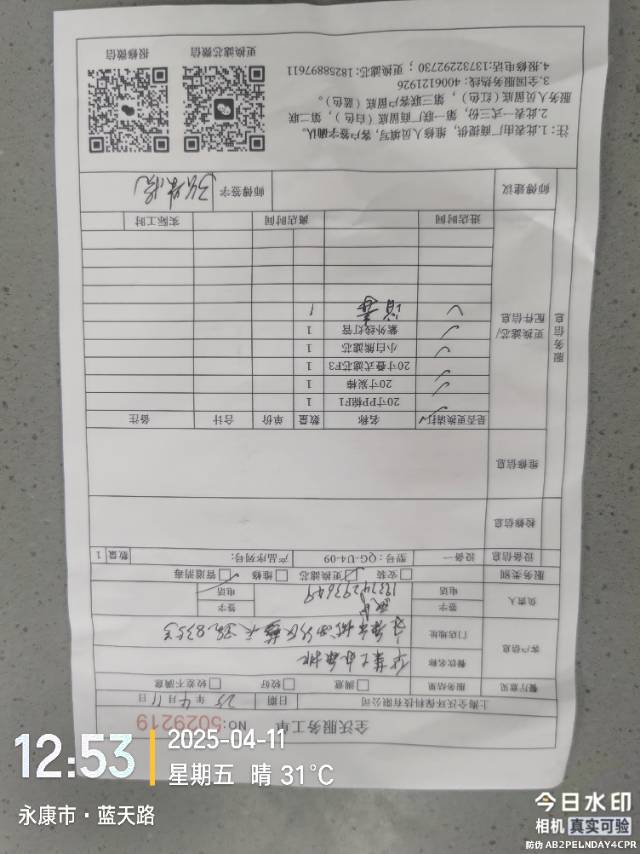 全沃服务工单
NO: 5029219
上海全沃环保科技有限公司 日期 25年4月11日
餐厅意见 服务结果 满意 较好 较差不满意
客户信息 餐饮名称
门店地址
负责人 签字 电话 13374293649 签字 电话
服务类别 安装 更换滤芯 维修 管道消毒
设备信息 设备一 型号：QG-U4-09 产品序列号： 数量 1
检修信息
维修信息
服务信息
更换滤芯/配件信息
是否更换请打✓ 名称 数量 单价 合计 备注
20寸PP棉F1 1
✓ 20寸炭棒 1
✓ 20寸叠式滤芯F3 1
✓ 小白熊滤芯 1
✓ 紫外线灯管 1
✓ 消毒 1
进店时间 离店时间 实际工时
师傅建议 师傅签字
注：1.此表由厂商提供，维修人员填写，客户签字确认。
2.此表一式三份，第一联厂商留底（白色），第二联
服务人员留底（红色），第三联客户留底（蓝色）。
3.全国服务热线：4006121926
4.报修电话:13732292730； 更换滤芯：18258897611
更换滤芯微信 报修微信
12:53
2025-04-11
星期五 晴 31℃
永康市·蓝天路
今日水印
相机 真实可验
防伪 AB2PELNDAY4CPR